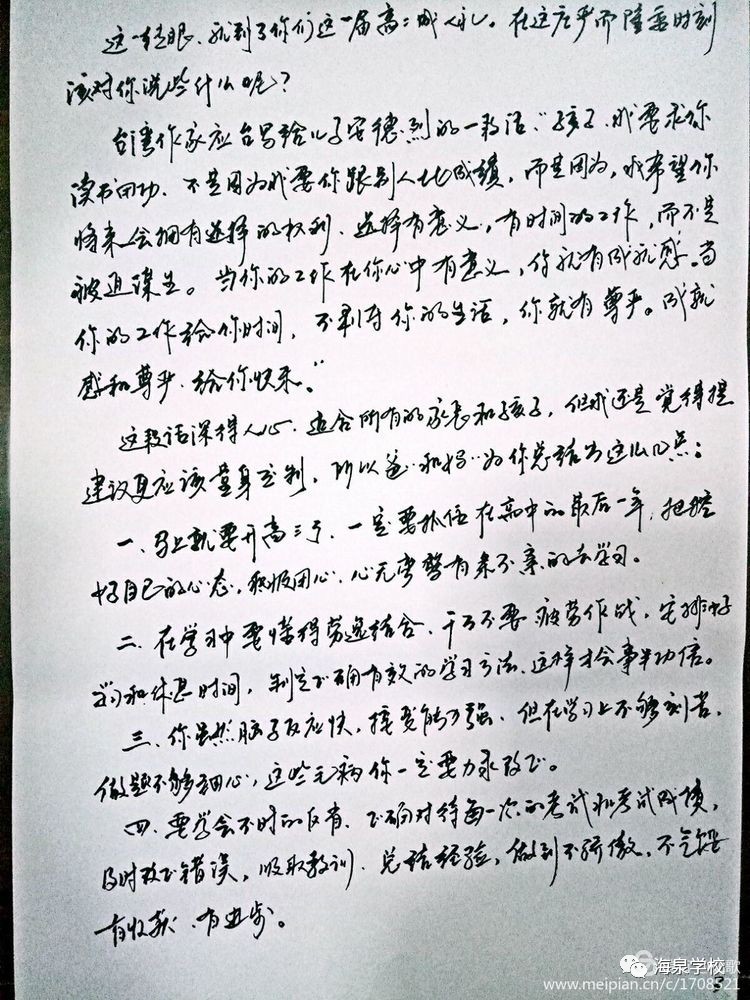 这一转眼、就到了你们这一届高三成人礼。在这庄严而隆重时刻
该对你说些什么呢？
台湾作家应台写给儿子安德烈的一段话：“孩子、我要求你
读书用功、不是因为我要你跟别人比成绩，而是因为，我希望你
将来会拥有选择的权利、选择有意义，有时间的工作，而不是
被迫谋生。当你的工作在你心中有意义，你就有成就感。当
你的工作给你时间，不剥夺你的生活，你就有尊严。成就
感和尊严、给你快乐。”
这段话深得人心、适合所有的家长和孩子，但我还是觉得提
建议更应该量身定制，所以爸爸和妈妈为你总结为这么几点：
一、马上就要升高三了、一定要抓住在高中的最后一年，把控
好自己的心态，积极用心、心无旁骛有条不紊的去学习。
二、在学习中要懂得劳逸结合、千万不要疲劳作战，安排好
学习和休息时间，制定正确有效的学习方法、这样才会事半功倍。
三、你虽然脑子反应快，接受能力强、但在学习上不够刻苦，
做题不够细心，这些毛病你一定要力求改正。
四、要学会不时的反省、正确对待每一次的考试和考试成绩，
及时改正错误，吸取教训、总结经验，做到不骄傲，不气馁
有收获、有进步。
海泉学校歌
www.meipian.cn/c/1708521
5